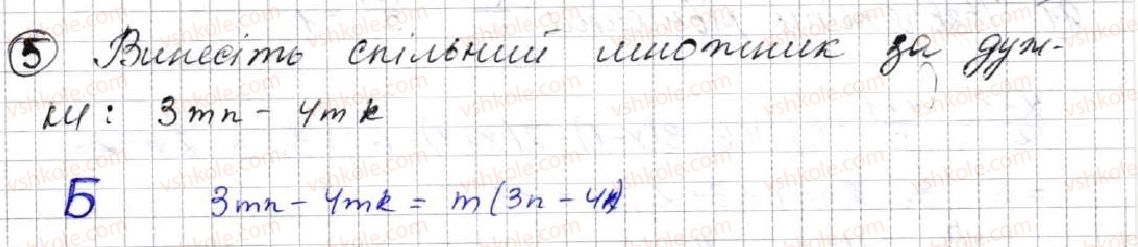 5 Винесіть спільний множник за дуж-
ки: 3mn - 4mk
Б 3mn - 4mk = m(3n - 4k)